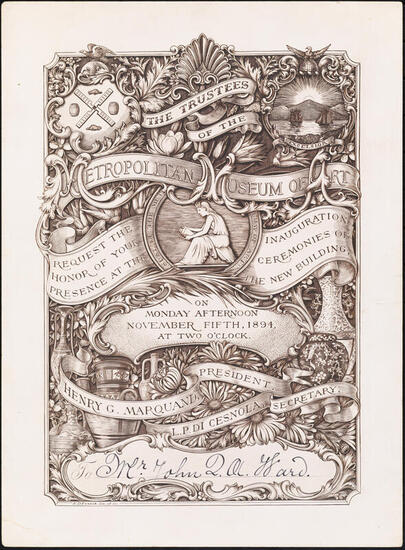 THE TRUSTEES
OF THE
METROPOLITAN MUSEUM OF ART
REQUEST THE
HONOR OF YOUR
PRESENCE AT THE
INAUGURATION
CEREMONIES OF
THE NEW BUILDING
ON
MONDAY AFTERNOON
NOVEMBER FIFTH, 1894,
AT TWO O'CLOCK.
HENRY G. MARQUAND, PRESIDENT
L.P. DI CESNOLA, SECRETARY;
To Mr John Q. A. Ward.